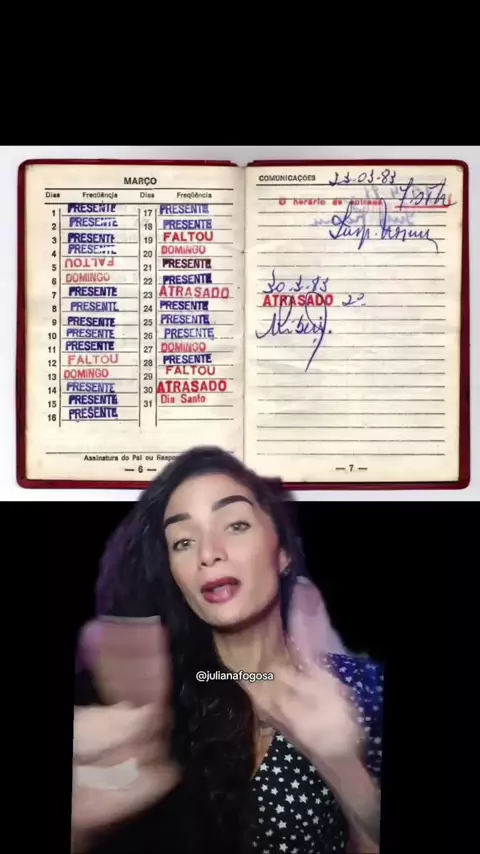 MARÇO
Dias Freqüência
1 PRESENTE
2 PRESENTE
3 PRESENTE
4 PRESENTE
5 FALTOU
6 DOMINGO
7 PRESENTE
8 PRESENTE
9 PRESENTE
10 PRESENTE
11 PRESENTE
12 FALTOU
13 DOMINGO
14 PRESENTE
15 PRESENTE
16 PRESENTE
Dias Freqüência
17 PRESENTE
18 PRESENTE
19 FALTOU
20 DOMINGO
21 PRESENTE
22 PRESENTE
23 ATRASADO
24 PRESENTE
25 PRESENTE
26 PRESENTE
27 DOMINGO
28 PRESENTE
29 FALTOU
30 ATRASADO
31 Dia Santo
Assinatura do Pai ou
— 6
COMUNICAÇÕES 23.03.83
O horário de
30.3.83
ATRASADO 2º
— 7 —
@julianafogosa